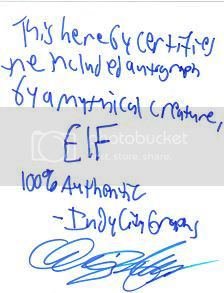 This hereby certifies
the included autograph
by a mythical creature,
photobucket
ELF
100% Authentic
- Indy City Graphs